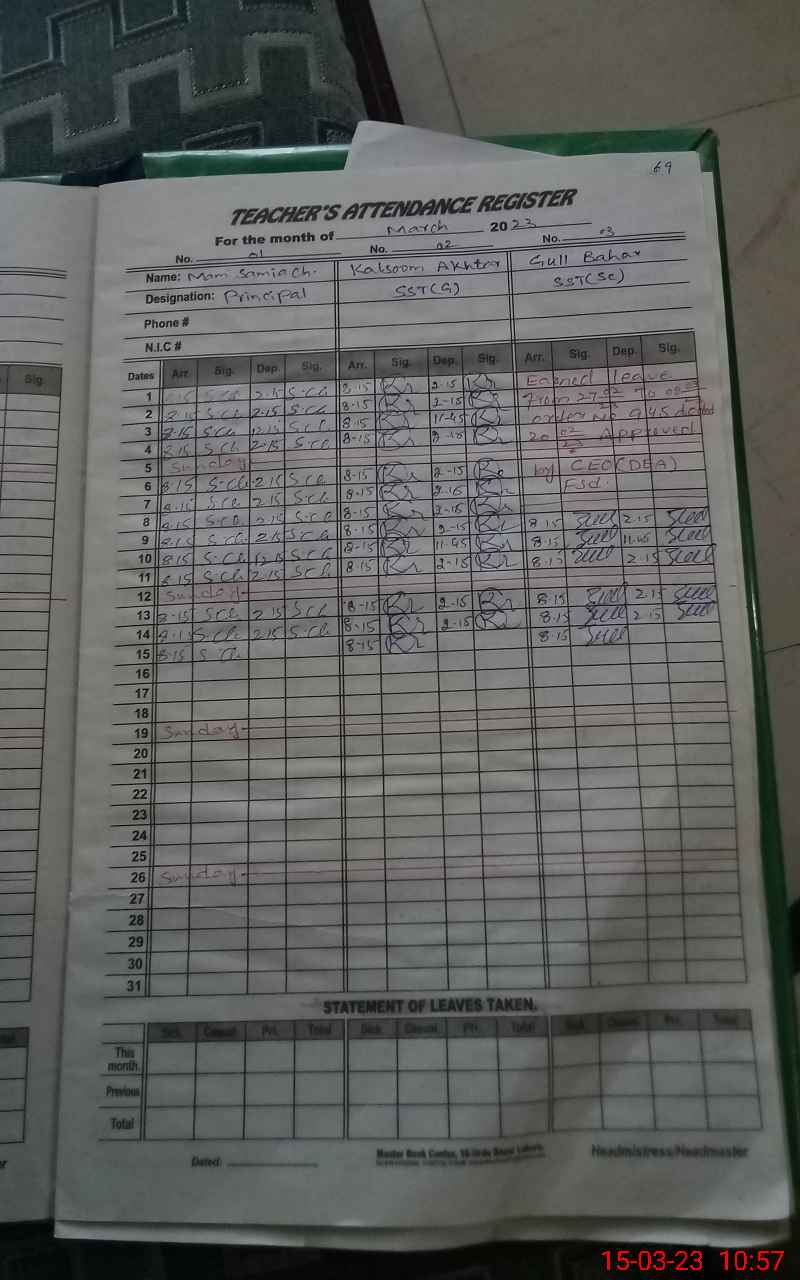 69
TEACHER'S ATTENDANCE REGISTER
For the month of March 2023
No. 01 No. 02 No. 03
Name: Mam Samia Ch. Kalsoom Akhtar Gull Bahar
Designation: Principal SST(G) SST(Sc)
Phone #
N.I.C #
Sig.
Dates Arr. Sig. Dep. Sig. Arr. Sig. Dep. Sig. Arr. Sig. Dep. Sig.
1 8-15 S.Ch 2.15 S.Ch 8-15 2-15 Earned leave
2 8-15 S.Ch 2.15 S.Ch 8-15 2-15 From 27-02 To
3 8-15 S.Ch 12.15 S.Ch 8-15 11-45 order No 945 dated
4 8-15 S.Ch 2.15 S.Ch 8-15 2-15 20 02/23 Approved
5 Sunday
6 8-15 S.Ch 2.15 S.Ch 8-15 2-15 by CEO(DEA)
7 8-15 S.Ch 2.15 S.Ch 8-15 2-15 Fsd.
8 8-15 S.Ch 2.15 S.Ch 8-15 2-15
9 8-15 S.Ch 2.15 S.Ch 8-15 2-15 8.15 2.15
10 8-15 S.Ch 12.15 S.Ch 8-15 11-45 8.15 11.45
11 8-15 S.Ch 2.15 S.Ch 8-15 2-15 8.15 2.15
12 Sunday
13 8-15 S.Ch 2.15 S.Ch 8-15 2-15 8.15 2.15
14 8-15 S.Ch 2.15 S.Ch 8-15 2-15 8.15 2.15
15 8-15 S.Ch 8-15 8.15
16
17
18
19 Sunday
20
21
22
23
24
25
26 Sunday
27
28
29
30
31
STATEMENT OF LEAVES TAKEN.
Sick. Casual Pri. Total Sick. Casual Pri. Total Sick. Casual Pri. Total
This
month.
Previous
Total
Dated: Master Book Centre, Urdu Bazar Lahore. Headmistress/Headmaster
15-03-23 10:57